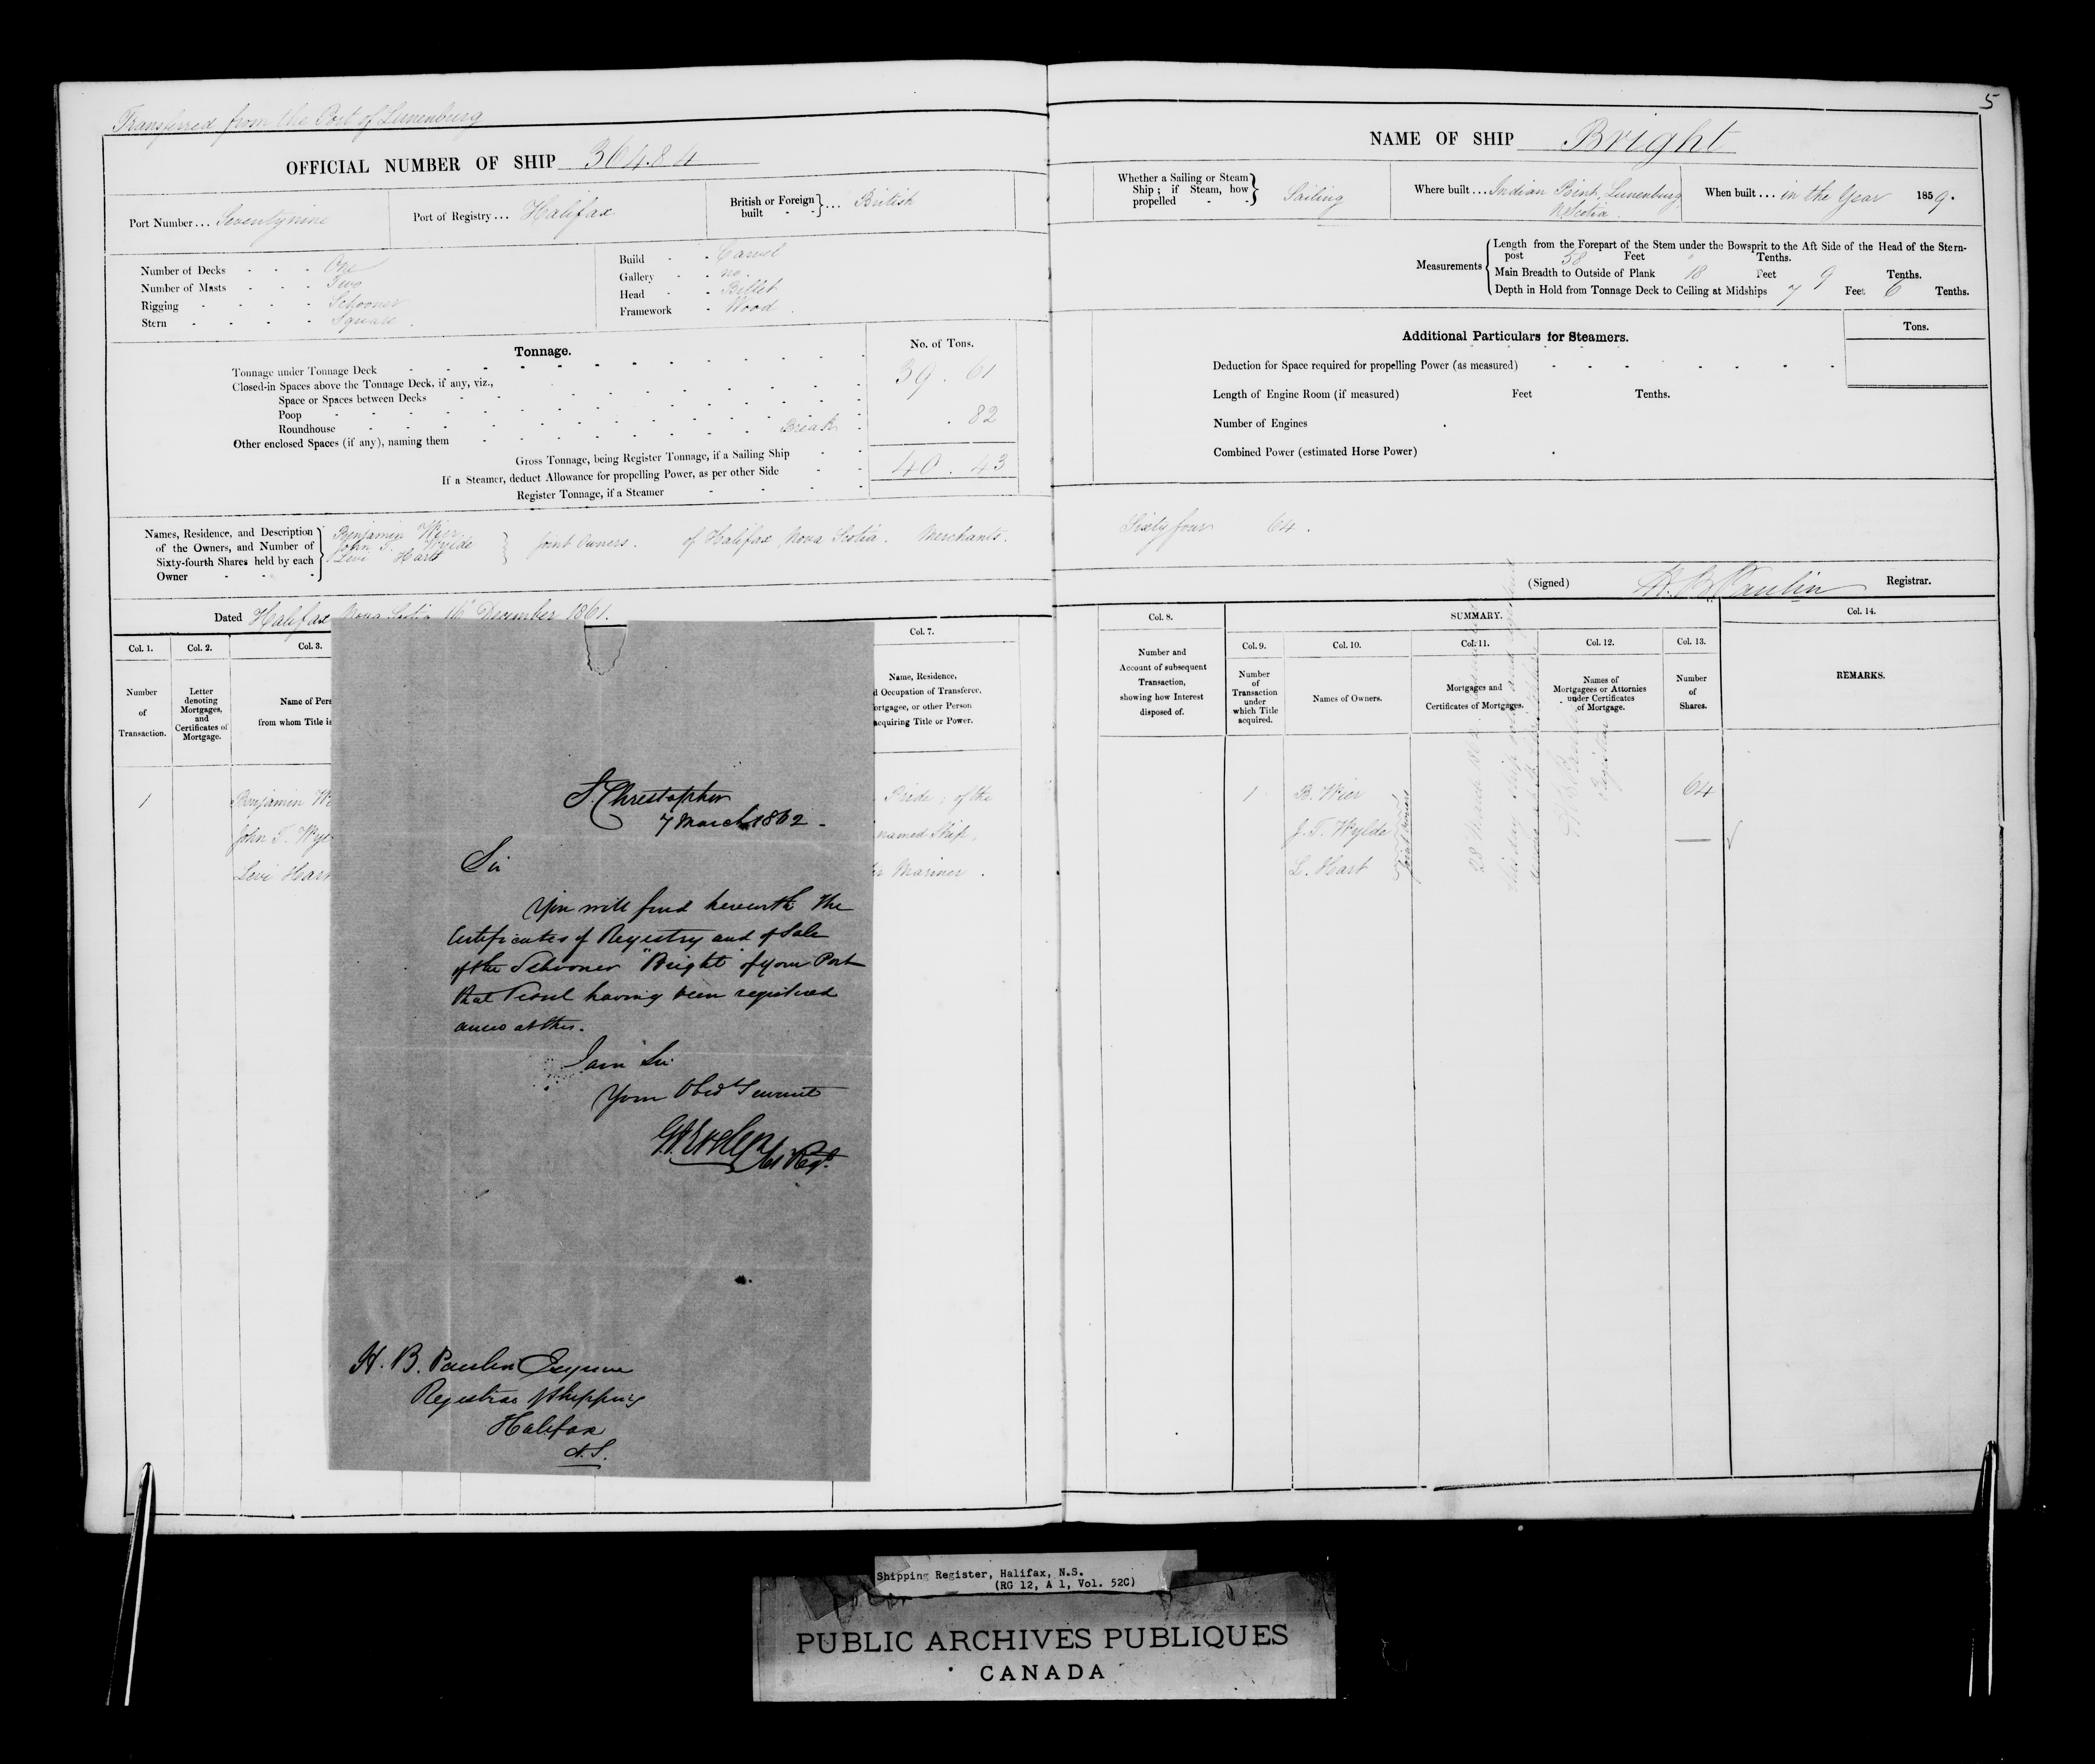 Transferred from the Port of Lunenburg
OFFICIAL NUMBER OF SHIP 36484
Port Number... Seventynine
Port of Registry... Halifax
British or Foreign built - - } ... British
Number of Decks - - - One
Number of Masts - - - Two
Rigging - - - - Schooner
Stern - - - - Square.
Build - - Carvel
Gallery - - no.
Head - - Billet
Framework - Wood.
Tonnage.
No. of Tons.
Tonnage under Tonnage Deck 39. 61
Closed-in Spaces above the Tonnage Deck, if any, viz.,
Space or Spaces between Decks
Poop
Roundhouse
Other enclosed Spaces (if any), naming them Break . 82
Gross Tonnage, being Register Tonnage, if a Sailing Ship 40. 43
If a Steamer, deduct Allowance for propelling Power, as per other Side
Register Tonnage, if a Steamer
Names, Residence, and Description
of the Owners, and Number of
Sixty-fourth Shares held by each
Owner
Benjamin Wier
John T. Wylde
Levi Hart
Joint Owners. of Halifax Nova Scotia. Merchants.
Dated Halifax Nova Scotia 16 December 1861.
Col. 1.
Number
of
Transaction.
Col. 2.
Letter
denoting
Mortgages,
and
Certificates of
Mortgage.
Col. 3.
Name of Pers
from whom Title is
Col. 7.
Name, Residence,
d Occupation of Transferee,
ortgagee, or other Person
acquiring Title or Power.
1
Benjamin We
John T. Wyl
Levi Hart
Pride; of the
named Ship,
Mariner.
St. Christopher
7 March 1862.
Sir
You will find herewith the
Certificates of Registry and of Sale
of the Schooner "Bright" of your Port
that Vessel having been registered
anew at this.
I am Sir
Your Obed Servant
H. B. Paulin Esquire
Registrar of Shipping
Halifax
N.S.
5
NAME OF SHIP Bright
Whether a Sailing or Steam
Ship; if Steam, how
propelled - - } Sailing
Where built... Indian Point, Lunenburg
N. Scotia
When built... in the Year 1859.
Measurements
Length from the Forepart of the Stem under the Bowsprit to the Aft Side of the Head of the Stern-
post 58 Feet " Tenths.
Main Breadth to Outside of Plank 18 Feet 9 Tenths.
Depth in Hold from Tonnage Deck to Ceiling at Midships 7 Feet 6 Tenths.
Additional Particulars for Steamers.
Tons.
Deduction for Space required for propelling Power (as measured)
Length of Engine Room (if measured) Feet Tenths.
Number of Engines
Combined Power (estimated Horse Power)
Sixty four 64.
(Signed) H. B. Paulin Registrar.
Col. 8.
Number and
Account of subsequent
Transaction,
showing how Interest
disposed of.
SUMMARY.
Col. 9.
Number
of
Transaction
under
which Title
acquired.
Col. 10.
Names of Owners.
Col. 11.
Mortgages and
Certificates of Mortgages.
Col. 12.
Names of
Mortgagees or Attornies
under Certificates
of Mortgage.
Col. 13.
Number
of
Shares.
Col. 14.
REMARKS.
1 B. Wier 64
J. T. Wylde
L. Hart
Joint Owners
28 March 1862
H B Paulin
Registrar
Shipping Register, Halifax, N.S.
(RG 12, A 1, Vol. 52C)
PUBLIC ARCHIVES PUBLIQUES
CANADA